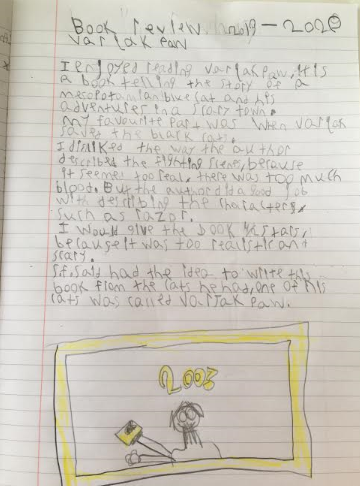 Book review 2019 – 2020
Varjak paw
I enjoyed reading varjak paw. It is
a book telling the story of a
mesopotamian blue cat and his
adventures in a scary town.
my favourite part was when varjak
saved the black cats.
I disliked the way the author
described the fighting scenes, because
it seemed too real. there was too much
blood. But the author did a good job
with describing the characters,
such as razor.
I would give the book stars,
because it was too realistic and
scary.
S.F. Said had the idea to write this
book from the cats he had, one of his
cats was called Varjak paw.
2003